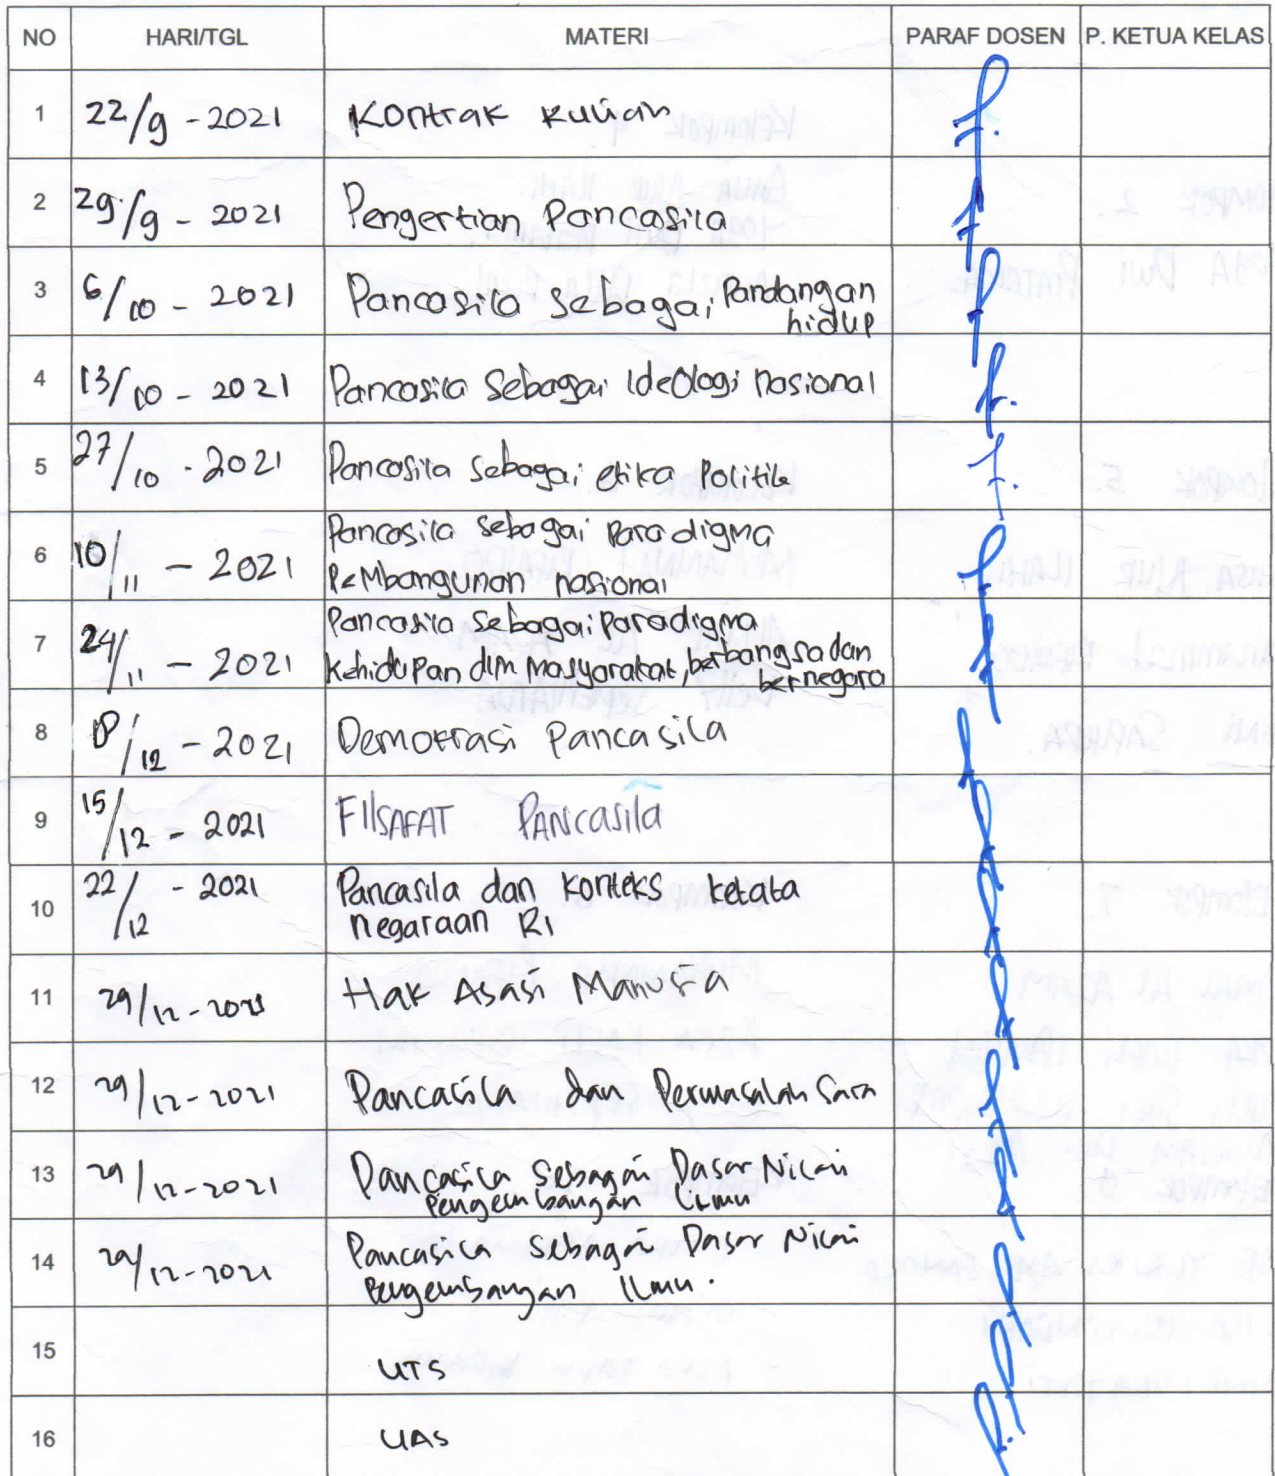 NO HARI/TGL MATERI PARAF DOSEN P. KETUA KELAS
1 22/9 - 2021 Kontrak Kuliah
2 29/9 - 2021 Pengertian Pancasila
3 6/10 - 2021 Pancasila sebagai Pandangan
hidup
4 13/10 - 2021 Pancasila Sebagai Ideologi Nasional
5 27/10 - 2021 Pancasila sebagai etika Politik
6 10/11 - 2021 Pancasila sebagai Paradigma
Pembangunan Nasional
7 24/11 - 2021 Pancasila Sebagai Paradigma
Kehidupan dlm Masyarakat, berbangsa dan
bernegara
8 /12 - 2021 Demokrasi Pancasila
9 15/12 - 2021 FIlSAFAT PANCasila
10 22/12 - 2021 Pancasila dan Konteks ketata
negaraan RI
11 29/12 - 2021 Hak Asasi Manusia
12 29/12 - 2021 Pancasila dan Permasalah Sara
13 29/12 - 2021 Pancasila Sebagai Dasar Nilai
Pengembangan Ilmu
14 29/12 - 2021 Pancasila Sebagai Dasar Nilai
Pengembangan Ilmu.
15 UTS
16 UAS